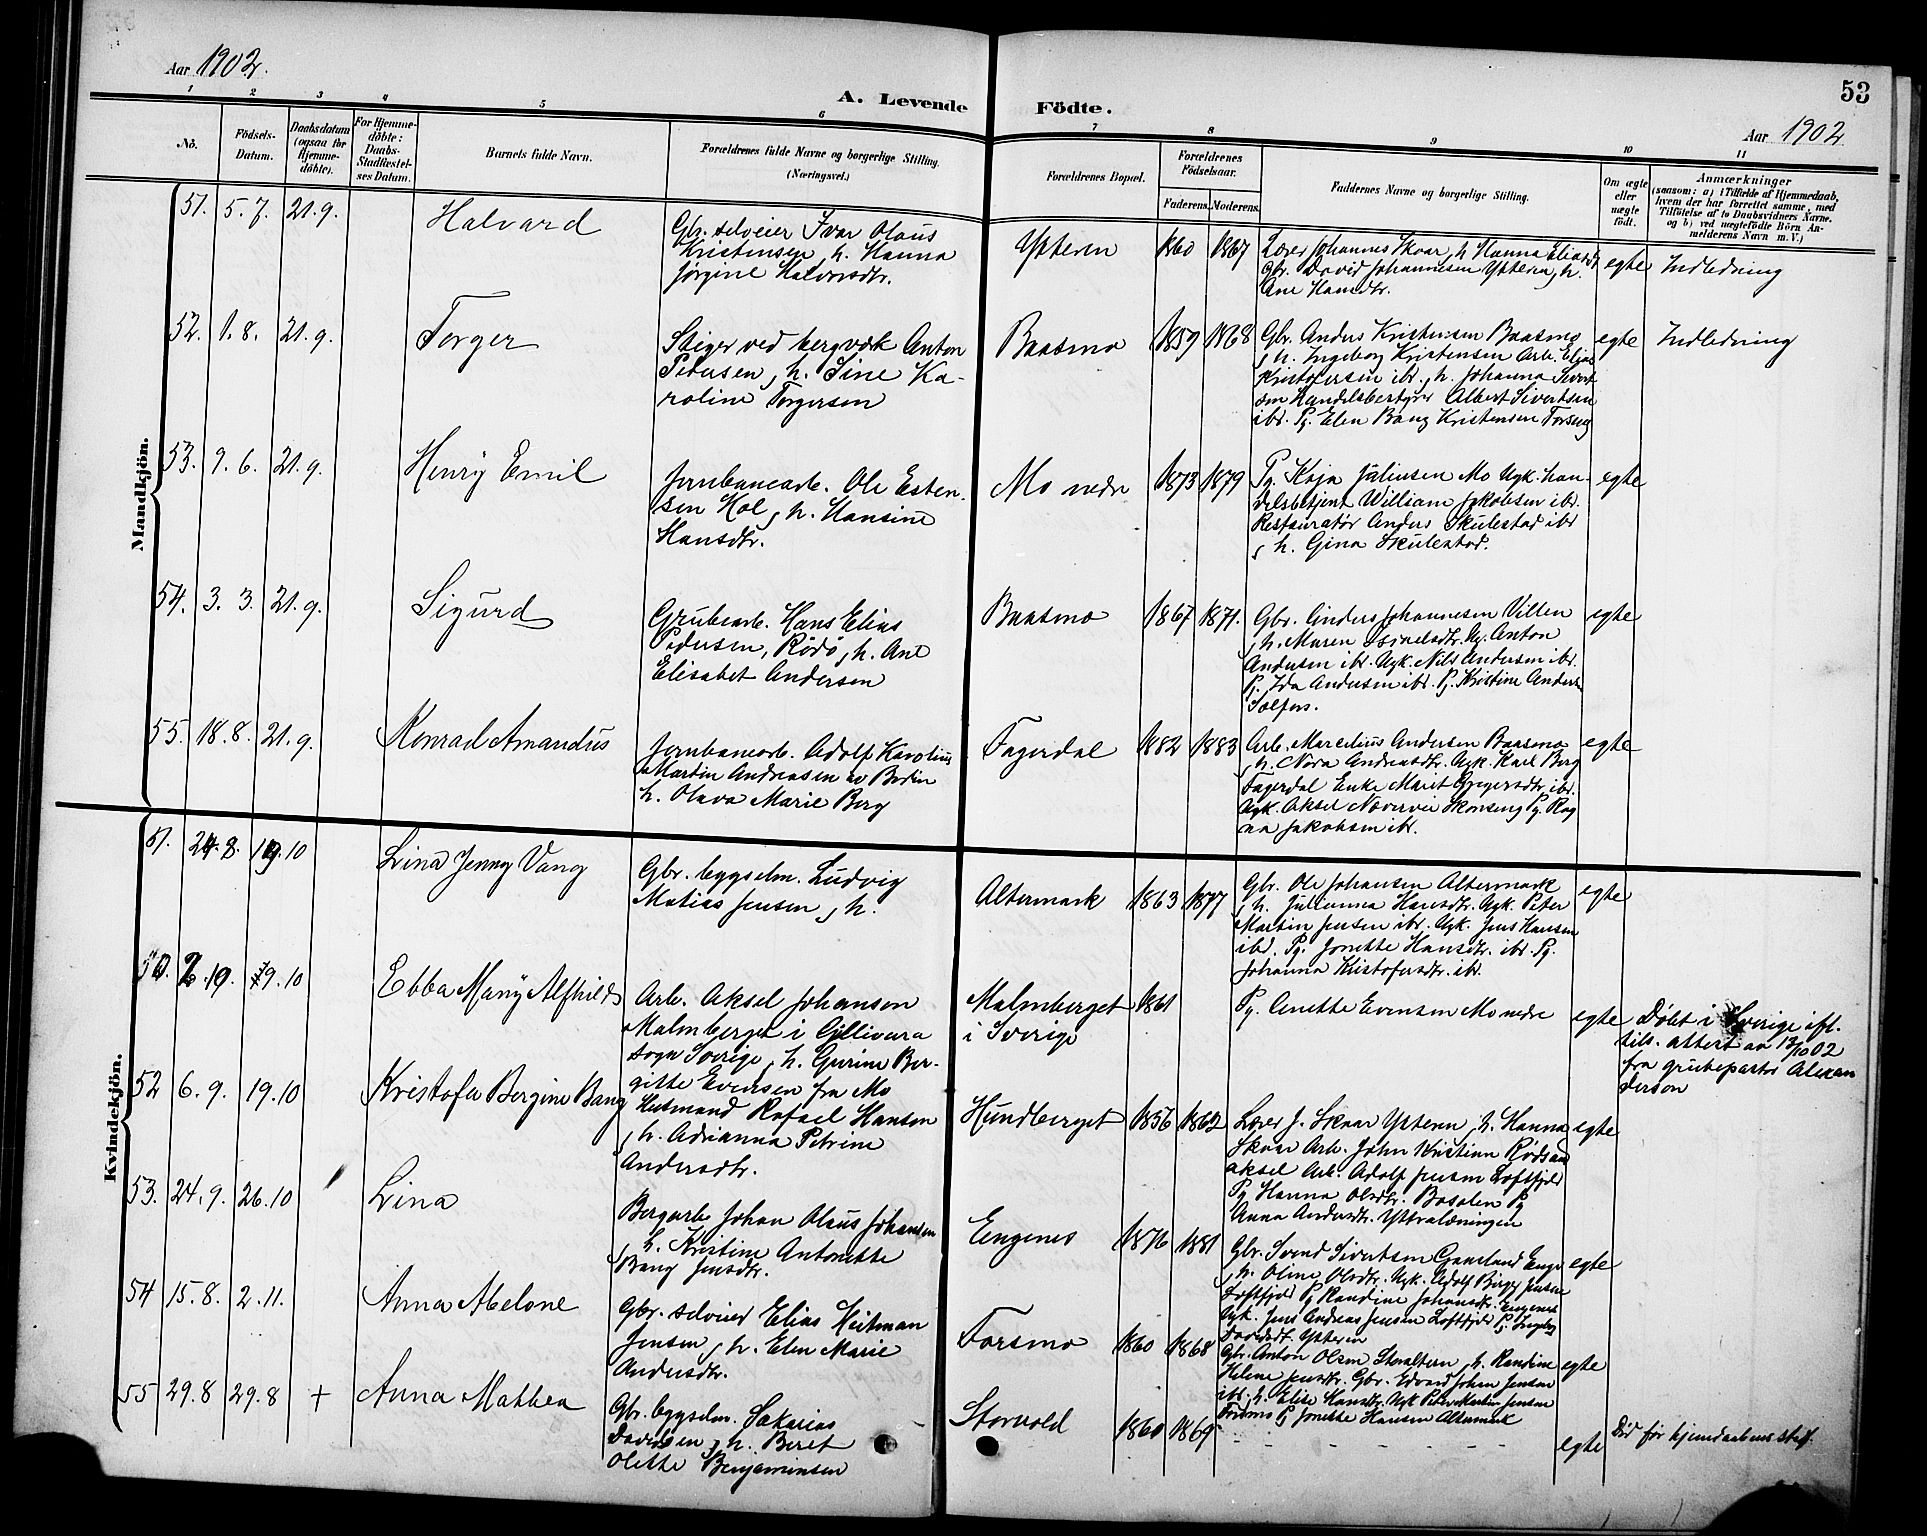 Aar 1902.
A. Levende Födte.
53
Aar 1902
1 2 3 4 5 6 7 8 9 10 11
No.
Födsels-
Datum.
Daabsdatum
(ogsaa for
Hjemme-
döbte).
For Hjemme-
döbte:
Daabs-
Stadfæstel-
ses Datum.
Barnets fulde Navn.
Forældrenes fulde Navne og borgerlige Stilling.
(Næringsvei.)
Forældrenes Bopæl.
Forældrenes
Födselsaar.
Faderens. Moderens.
Faddernes Navne og borgerlige Stilling.
Om ægte
eller
uægte
födt.
Anmærkninger
(saasom: a) i Tilfælde af Hjemmedaab,
hvem der har forrettet samme, med
Tilföielse af to Daabsvidners Navne.
og b) ved uægtefödte Börn An-
melderens Navn m. V.)
Mandkjön.
51. 5. 7. 21. 9. Halvard
Gbr. selveier Ivar Olaus
Kristensen, h. Hanna
Jørgine Halvorsdtr.
Ytteren 1860 1867
Lærer Johannes Skaar, h. Hanna Eliasdtr
Gbr. David Johannesen Ytteren, h.
Ane Hansdtr.
egte Indledning
52. 1. 8. 21. 9. Torger
Stiger ved bergverk Anton
Pedersen, h. Sine Ka-
roline Torgersen
Baasmo 1859 1868
Gbr. Anders Kristensen Baasmo
, h. Ingeborg Kristensen Arb. Elias
Kristofersen ibr., h. Johanna Sivert
sen Handelsbetjent Albert Sivertsen
ibr. Pg. Elen Bang Kristensen
egte Indledning
53. 9. 6. 21. 9. Henry Emil
Jernbanearb. Ole Esten-
sen Hol, h. Hansine
Hansdtr.
Mo nedre 1873 1879
Pg. Kaja Juliusen Mo Ugk. han-
delsbetjent William Jakobsen ibr.
Restauratør Anders Skulestad ibr
, h. Gina Skulestad.
egte
54. 3. 3. 21. 9. Sigurd
Grubearb. Hans Elias
Pedersen, Rødø, h. Ane
Elisabet Andersen
Baasmo 1867 1871.
Gbr. Anders Johannesen Villen
, h. Maren Ug. Anton
Andersen ibr. Ugk. Nils Andersen ibr.
Pg. Ida Andersen ibr. Pg. Kristine Andersen
egte
55. 18. 8. 21. 9. Konrad Amandus
Jernbanearb. Adolf Karolius
Martin Andreasen av Bodin
h. Olava Marie Berg
Fagerdal 1882 1883
Arb. Marcelius Andersen Baasmo
, h. Nora Andreasdtr. Ugk. Karl Berg
Fagerdal Enke Marit ibr.
Ugk. Aksel Nævernei Skonseng Pg. Rag
na Jakobsen ibr.
egte
Kvindekjön.
51. 24. 8. 19. 10 Lina Jenny Vang
Gbr. bygselm. Ludvig
Matias Jensen, h.
Altermark 1863 1877
Gbr. Ole Johansen Altermark
, h. Julianna Hansdtr. Ugk. Peter
Martin Jensen ibr. Ugk. Jens Hansen
ibd. Pg. Jonette Hansdtr. ibr. Pg.
Johanna Kristofersdtr. ibr.
egte
19. 10 Ebba Mary Alfhild
Arb. Aksel Johanson
Malmberget i Gellivara
sogn Sverige, h. Gurine Ber-
gitte Evensen fra Mo
Malmberget
i Sverige
1861
Pg. Anette Evensen Mo nedre
egte
Døbt i Sverige ifl.
attest av 13/10 02
fra grubepastor Alexan
derson
52 6. 9. 19. 10 Kristofa Bergine Bang
Husmand Rafael Hansen
, h. Adrianna Petrine
Andersdtr.
Hundberget 1856 1862
Lærer J. Skaar Ytteren, h. Hanna
Skaar Arb. John Kristian Rødsand
aksel Arb. Adolf Jensen Loftfjeld
Pg. Hanna Olsdtr. Basalen Pg
Anna Andersdtr.
egte
53. 24. 9. 26. 10 Lina
Bergarb. Johan Olaus Johansen
h. Kristine Antonette
Bang Jensdtr.
Engenes 1876 1881
Gbr. Svend Sivertsen Granelund Enge
, h. Oline Olsdtr. Ugk. Adolf Jensen
Loftfjeld Pg Randine Johansdtr. Engenes
Ugk. Jens Andreas Jensen Loftfjeld Pg. Ingebor
Davidsdt. Ytteren
egte
54 15. 8. 2. 11. Anna Abelone
Gbr. selveier Elias Heitman
Jensen, h. Elen Marie
Andersdtr.
Forsmo 1860 1868
Gbr. Anton Olsen Storaltern, h. Randine
Helene Jensdtr. Gbr. Edvard Johan Jensen
ibr., h. Elise Hansdtr. Ugk Peter Martin Jensen
Pg Jonette Hansen Altermark
egte
55 29. 8 29. 8 + Anna Mathea
Gbr. bygselm. Sakarias
Davidsen, h. Beret
Olette Benjaminsen
Storvold 1860 1869
egte
Død før hjemdaabens stadf.